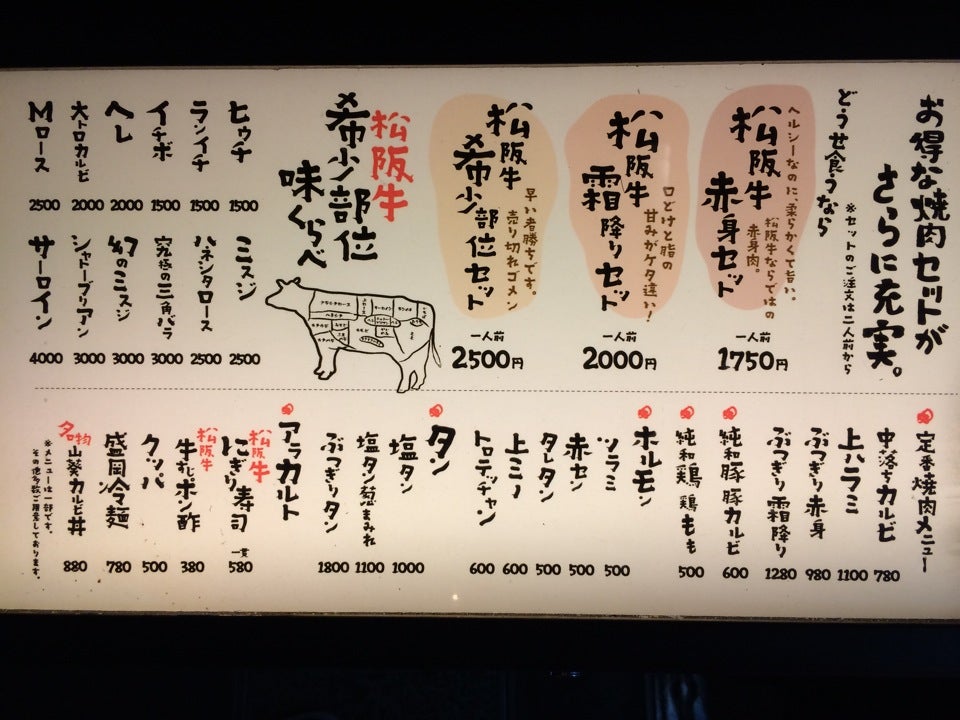 お得な焼肉セットが
さらに充実。
※セットのご注文は二人前から
どうせ食うなら
ヘルシーなのに、柔らかくて旨い。
松阪牛ならではの
赤身肉。
松阪牛
赤身セット
一人前
1750円
口どけと脂の
甘みがケタ違い!
松阪牛
霜降りセット
一人前
2000円
早い者勝ちです。
売り切れゴメン
松阪牛
希少部位セット
一人前
2500円
松阪牛
希少部位
味くらべ
ヒウチ 1500
ランイチ 1500
イチボ 1500
ヘレ 2000
大トロカルビ 2000
Mロース 2500
ミスジ 2500
ハネシタロース 2500
究極の三角バラ 3000
幻のミスジ 3000
シャトーブリアン 3000
サーロイン 4000
定番焼肉メニュー
中落ちカルビ 780
上ハラミ 1100
ぶつぎり赤身 980
ぶつぎり霜降り 1280
純和豚 豚カルビ 600
純和鶏 鶏もも 500
ホルモン
ツラミ 500
赤セン 500
タレタン 500
上ミノ 600
トロテッチャン 600
タン
塩タン 1000
塩タン葱まみれ 1100
ぶつぎりタン 1800
アラカルト
松阪牛
にぎり寿司 一貫 580
松阪牛
牛すじポン酢 380
クッパ 500
盛岡冷麺 780
名物
山葵カルビ丼 880
※メニューは一部です。
その他多数ご用意しております。